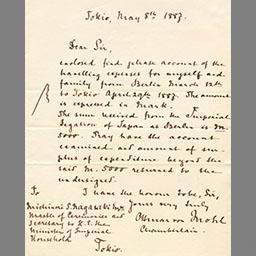 Tokio, May 8th 1887.
Dear Sir,
enclosed find please account of the
travelling expenses for myself and
family from Berlin March 12th
to Tokio April 29th 1887. The amount
is expressed in Mark.
The sum received from the Imperial
Legation of Japan at Berlin is M.
5000. Pray have the account
examined and amount of sur-
plus of expenditure beyond the
said M. 5000 returned to the
undersigned.
I have the honour to be, Sir,
Yours very truly
Ottmar von Mohl
Chamberlain.
To
S. Nagasaki
Master of Ceremonies and
Secretary to H. E. the
Minister of Imperial
Household
Tokio.